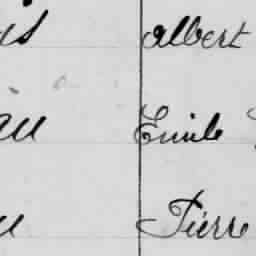 is albert
au Emile
u Pierre